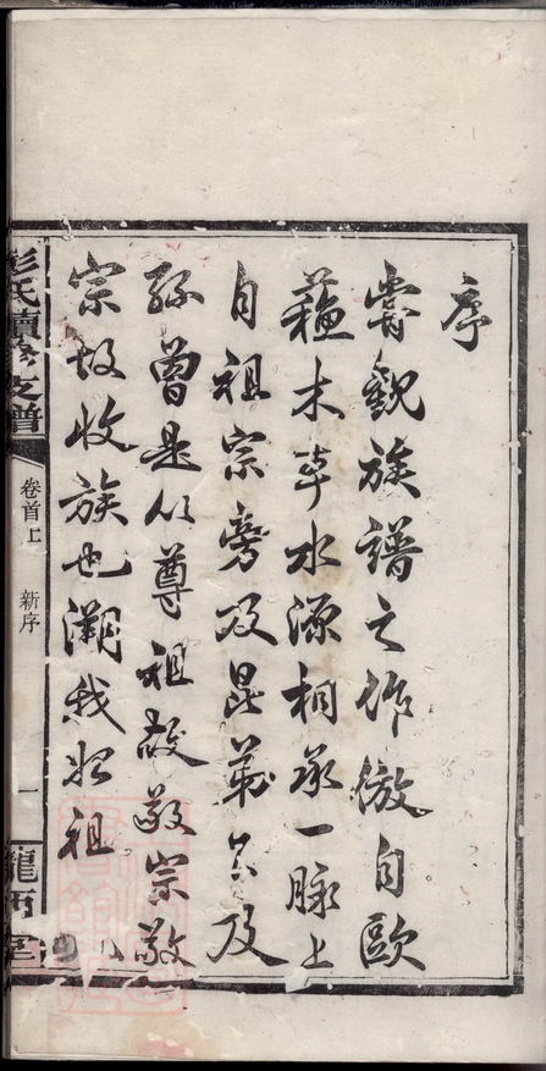 序
嘗觀族譜之作倣自歐
蘓木本水源相承一脉上
自祖宗旁及昆弟下及
孫曾是以尊祖故敬宗敬
宗故收族也溯我始祖
彭氏續修支譜
卷首上 新序
一